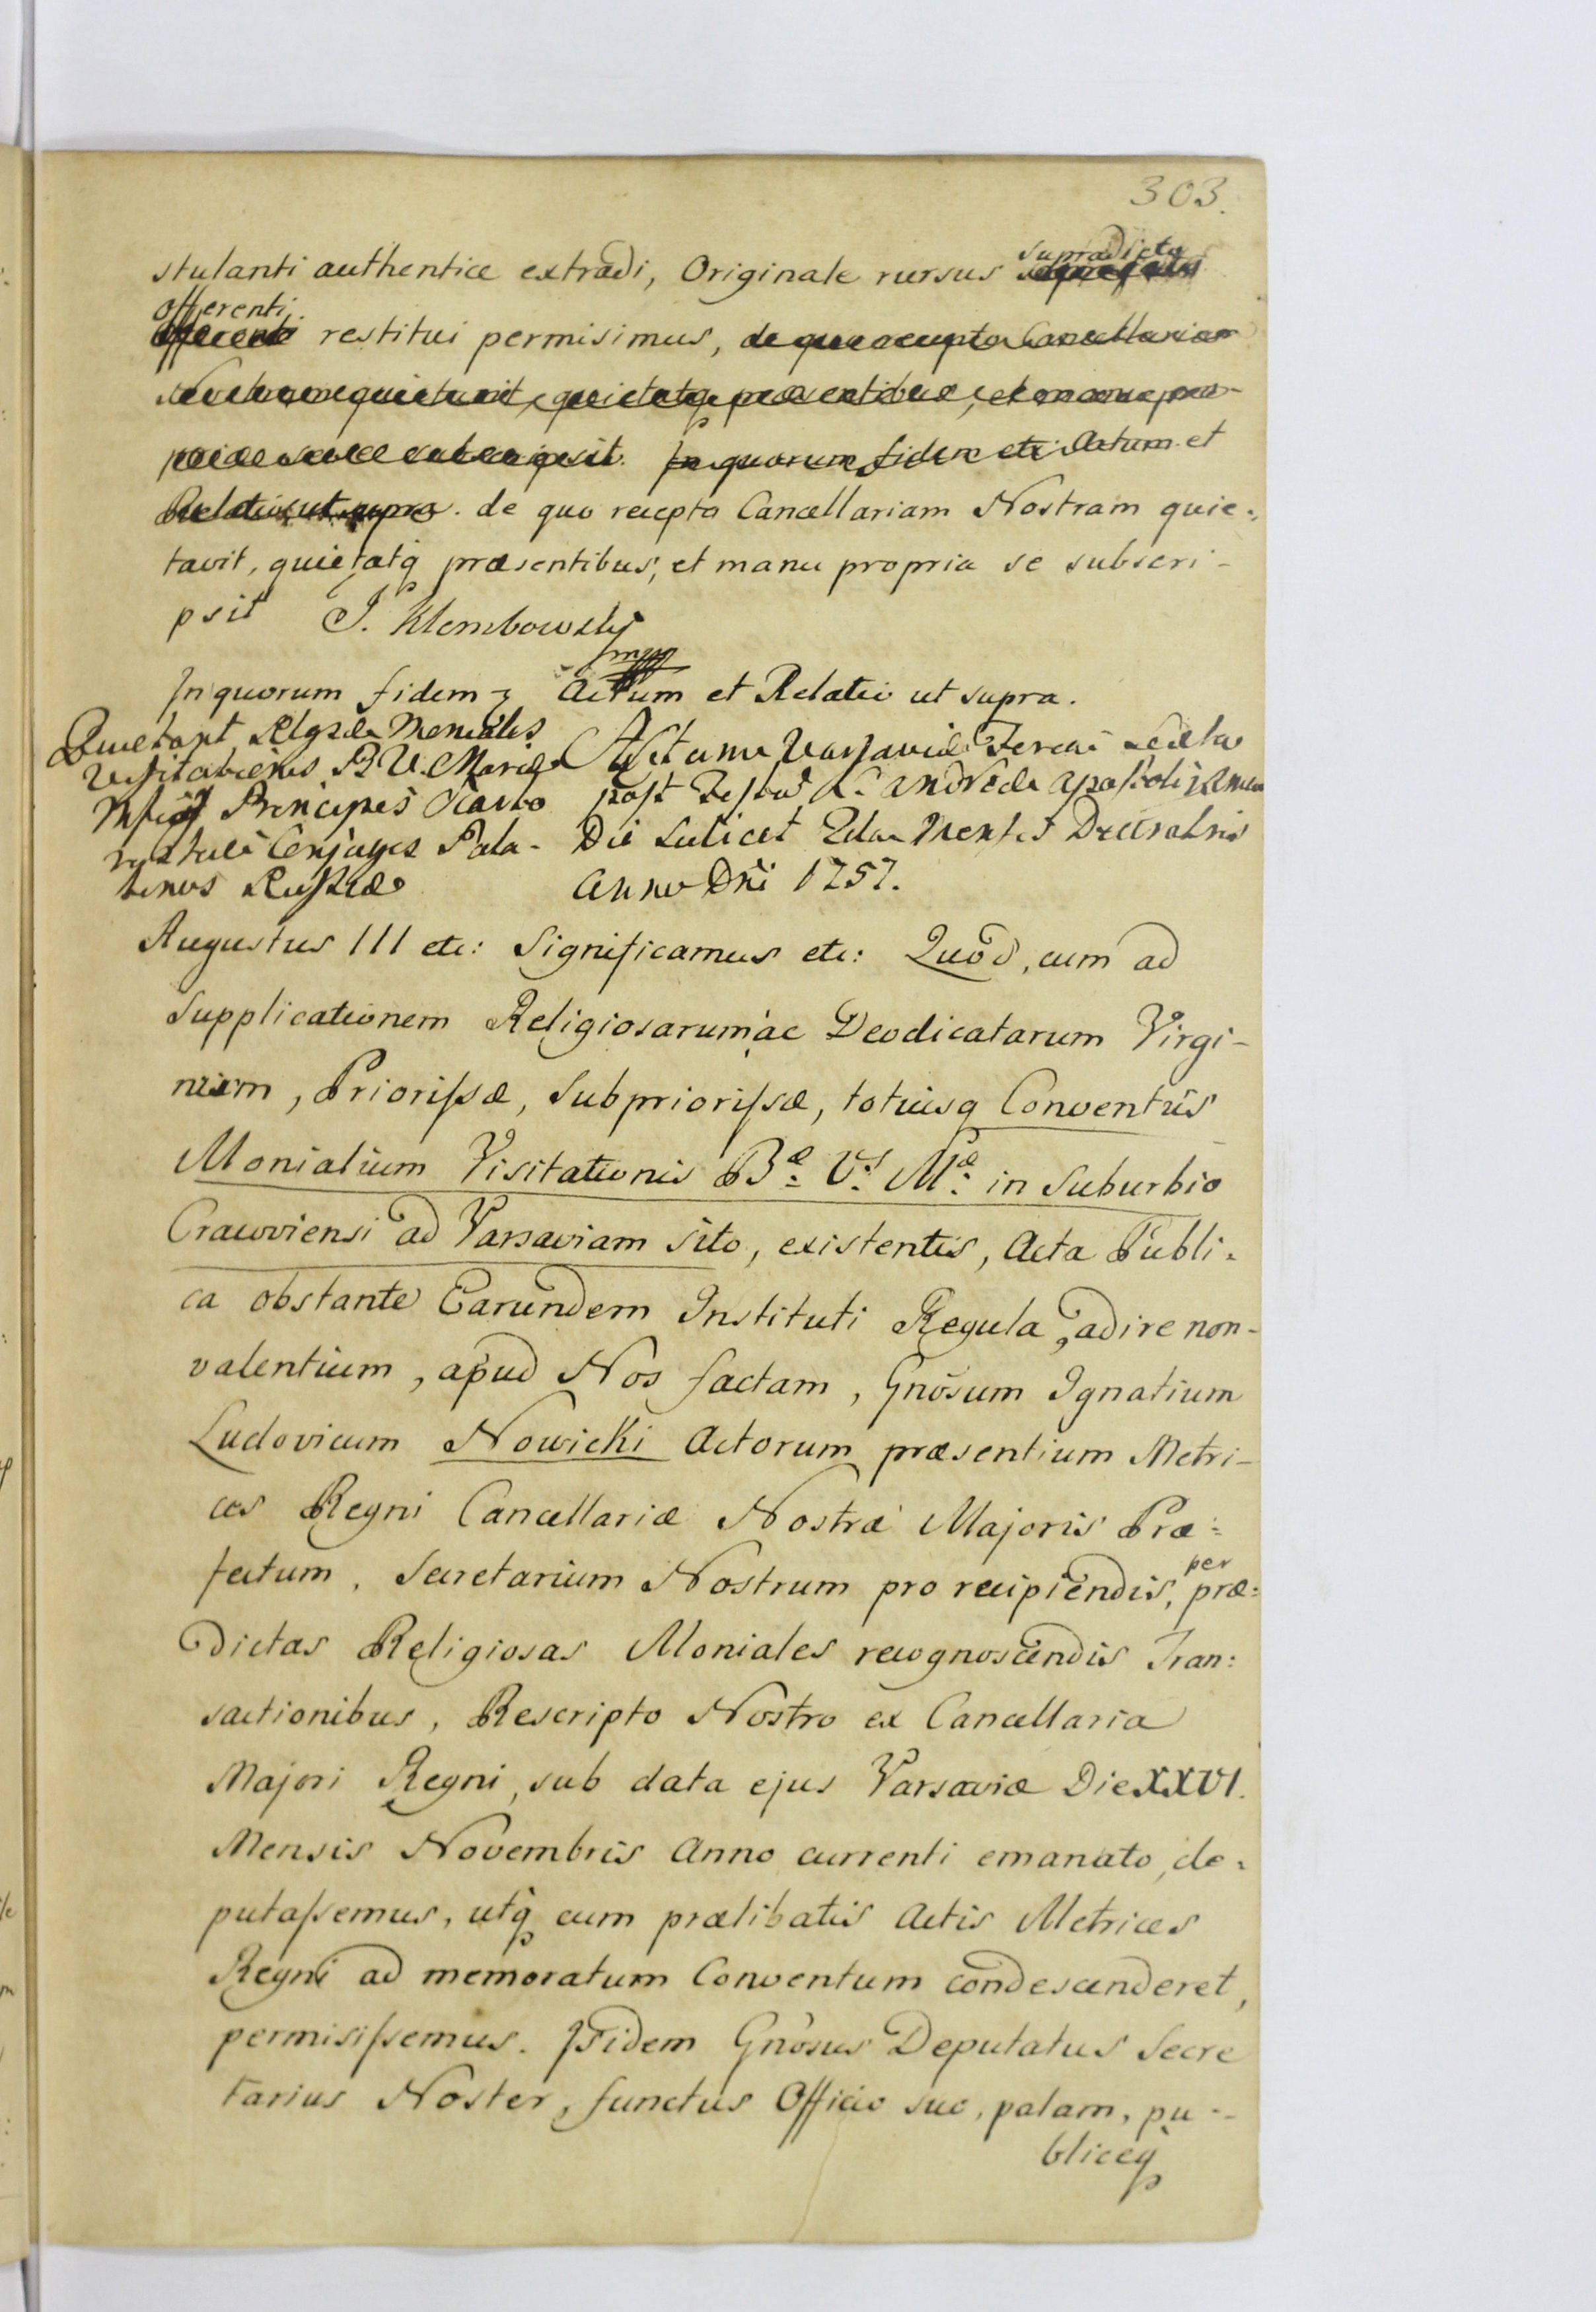 303.
stulanti authentice extradi, Originale rursus supradicto
offerenti restitui permisimus, de quo recepto Cancellariam
Nostram quietavit, quietatq præsentibus, et manu pro-
pria se subscripsit. In quorum fidem etc: Actum et
Relatio ut supra. de quo recepto Cancellariam Nostram quie-
tavit, quietatq præsentibus, et manu propria se subscri-
psit J. Klembowsky
mpp
In quorum fidem Actum et Relatio ut supra.
Quietant Relgsæ Moniales
Visitationis B. V. Mariæ
Principes Czarto
ryskie Conjuges Pala-
tinos Russiæ
Actum Varsaviæ Feria Sexta
post Festum S. Andreæ Apostoli
Die Scilicet 2da Mensis Decembris
Anno Dni 1757.
Augustus III etc: Significamus etc: Quod, cum ad
Supplicationem Religiosarum ac Deodicatarum Virgi-
num, Priorissæ, Subpriorissæ, totiusq Conventus
Monialium Visitationis Bæ: Vs: Mæ: in Suburbio
Cracoviensi ad Varsaviam sito, existentis, Acta Publi-
ca obstante Earundem Instituti Regula, adire non-
valentium, apud Nos factam, Gnosum Ignatium
Ludovicum Nowicki Actorum præsentium Metri-
ces Regni Cancellariæ Nostræ Majoris Præ-
fectum, Secretarium Nostrum pro recipiendis, per præ-
dictas Religiosas Moniales recognoscendis Tran-
sactionibus, Rescripto Nostro ex Cancellaria
Majori Regni, sub data ejus Varsaviæ Die XXVI.
Mensis Novembris Anno currenti emanato, de-
putassemus, utq cum prælibatis Actis Metrices
Regni ad memoratum Conventum condescenderet,
permisissemus. Isidem Gnosus Deputatus Secre
tarius Noster, functus Officio suo, palam, pu-
bliceq